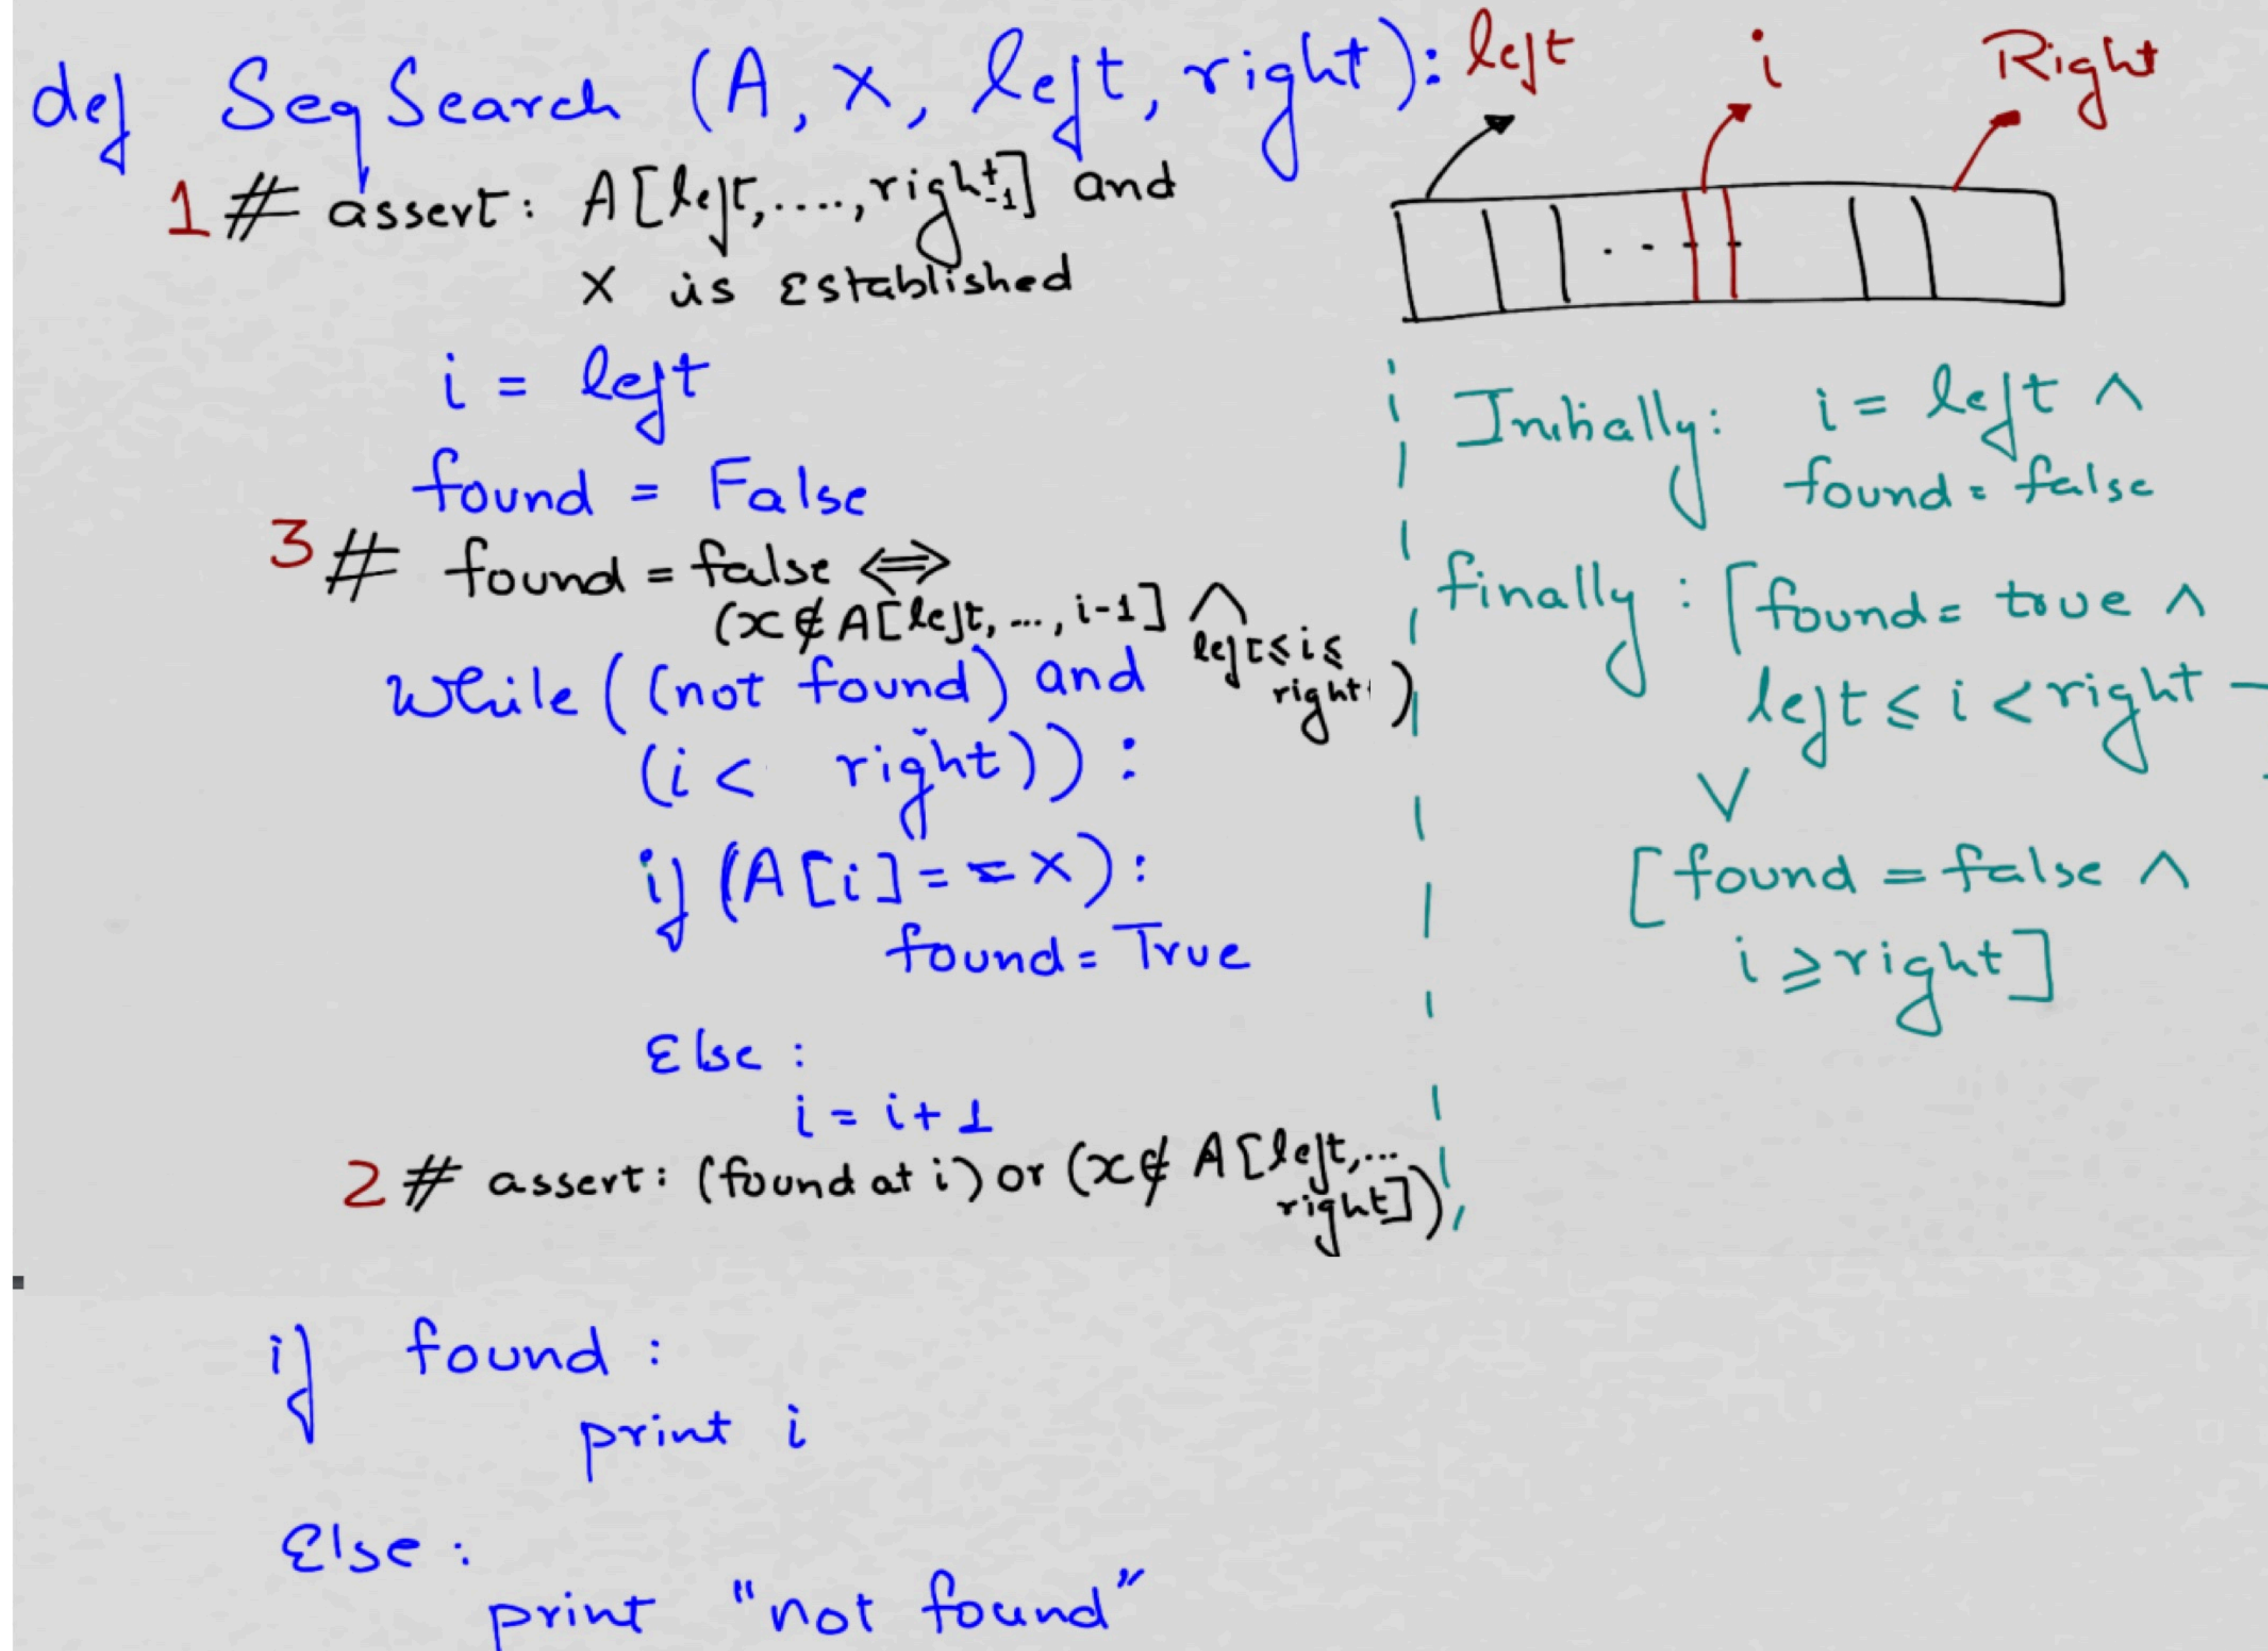 def SeqSearch (A, X, left, right):
left i Right
1 # assert: A[left,....,right-1] and
X is Established
i = left
found = False
3 # found = false ⇔
(x ∉ A[left, ..., i-1] ∧
left ≤ i ≤
right)
While ((not found) and
(i < right)) :
if (A[i] == X) :
found = True
Else :
i = i+1
2 # assert: (found at i) or (x ∉ A[left,...
right])
if found :
print i
Else :
print "not found"
Initially: i = left ∧
found = false
finally : [found = true ∧
left ≤ i < right
∨
[found = false ∧
i ≥ right]